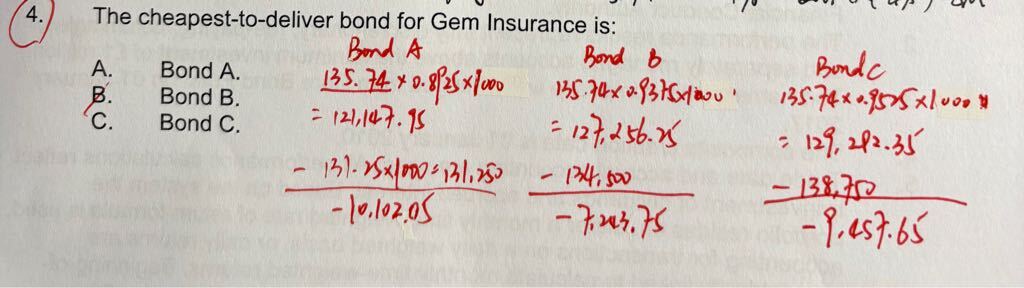 4. The cheapest-to-deliver bond for Gem Insurance is:
A. Bond A.
B. Bond B.
C. Bond C.
Bond A
135.74 × 0.8925 × 1000
= 121,147.95
- 131.25×1000 = 131,250
- 10,102.05
Bond B
135.74 × 0.9375 × 1000
= 127,256.25
- 134,500
- 7,243.75
Bond C
135.74 × 0.9525 × 1000
= 129,292.35
- 138,750
- 9,457.65